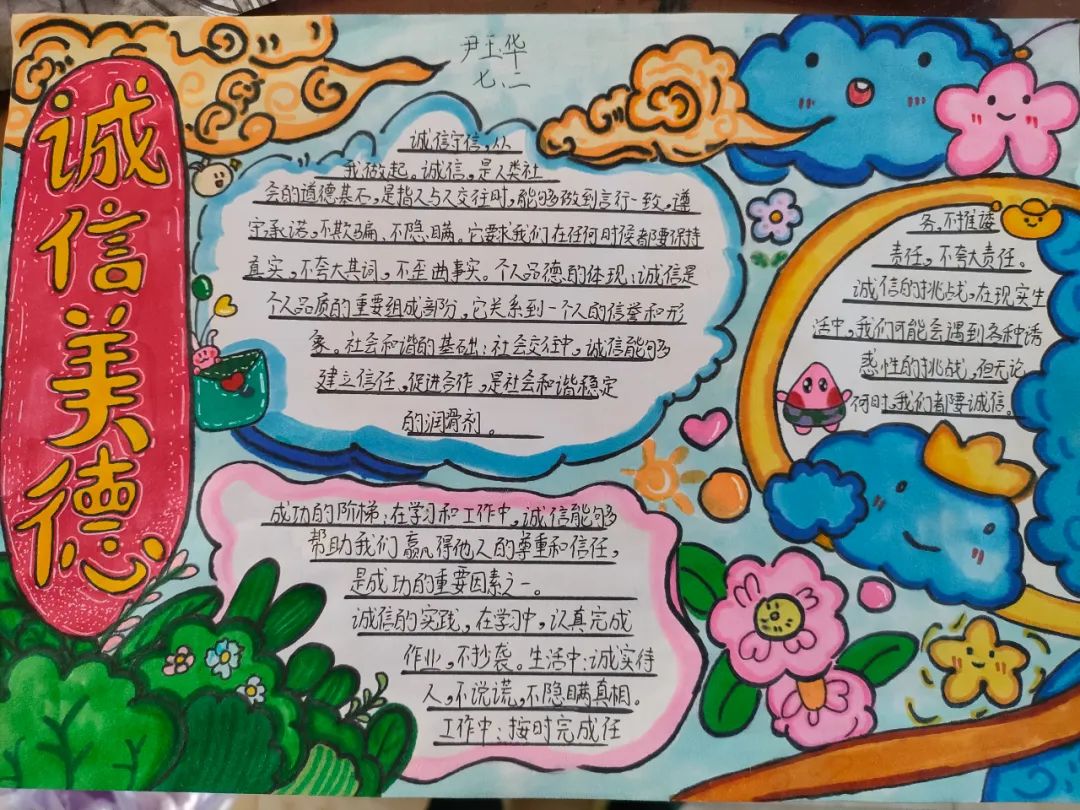 诚信美德
尹玉华
七、二
诚信守信，从
我做起。诚信，是人类社
会的道德基石，是指人与人交往时，能够做到言行一致，遵
守承诺，不欺骗、不隐瞒。它要求我们在任何时候都要保持
真实，不夸大其词，不歪曲事实。个人品德的体现：诚信是
个人品质的重要组成部分，它关系到一个人的信誉和形
象。社会和谐的基础：社会交往中，诚信能够
建立信任，促进合作，是社会和谐稳定
的润滑剂。
成功的阶梯：在学习和工作中，诚信能够
帮助我们赢得他人的尊重和信任，
是成功的重要因素之一
诚信的实践，在学习中，认真完成
作业，不抄袭。生活中：诚实待
人，不说谎，不隐瞒真相。
工作中：按时完成任
务，不推诿
责任，不夸大责任。
诚信的挑战，在现实生
活中，我们可能会遇到各种诱
惑性的挑战，但无论
何时，我们都要诚信。